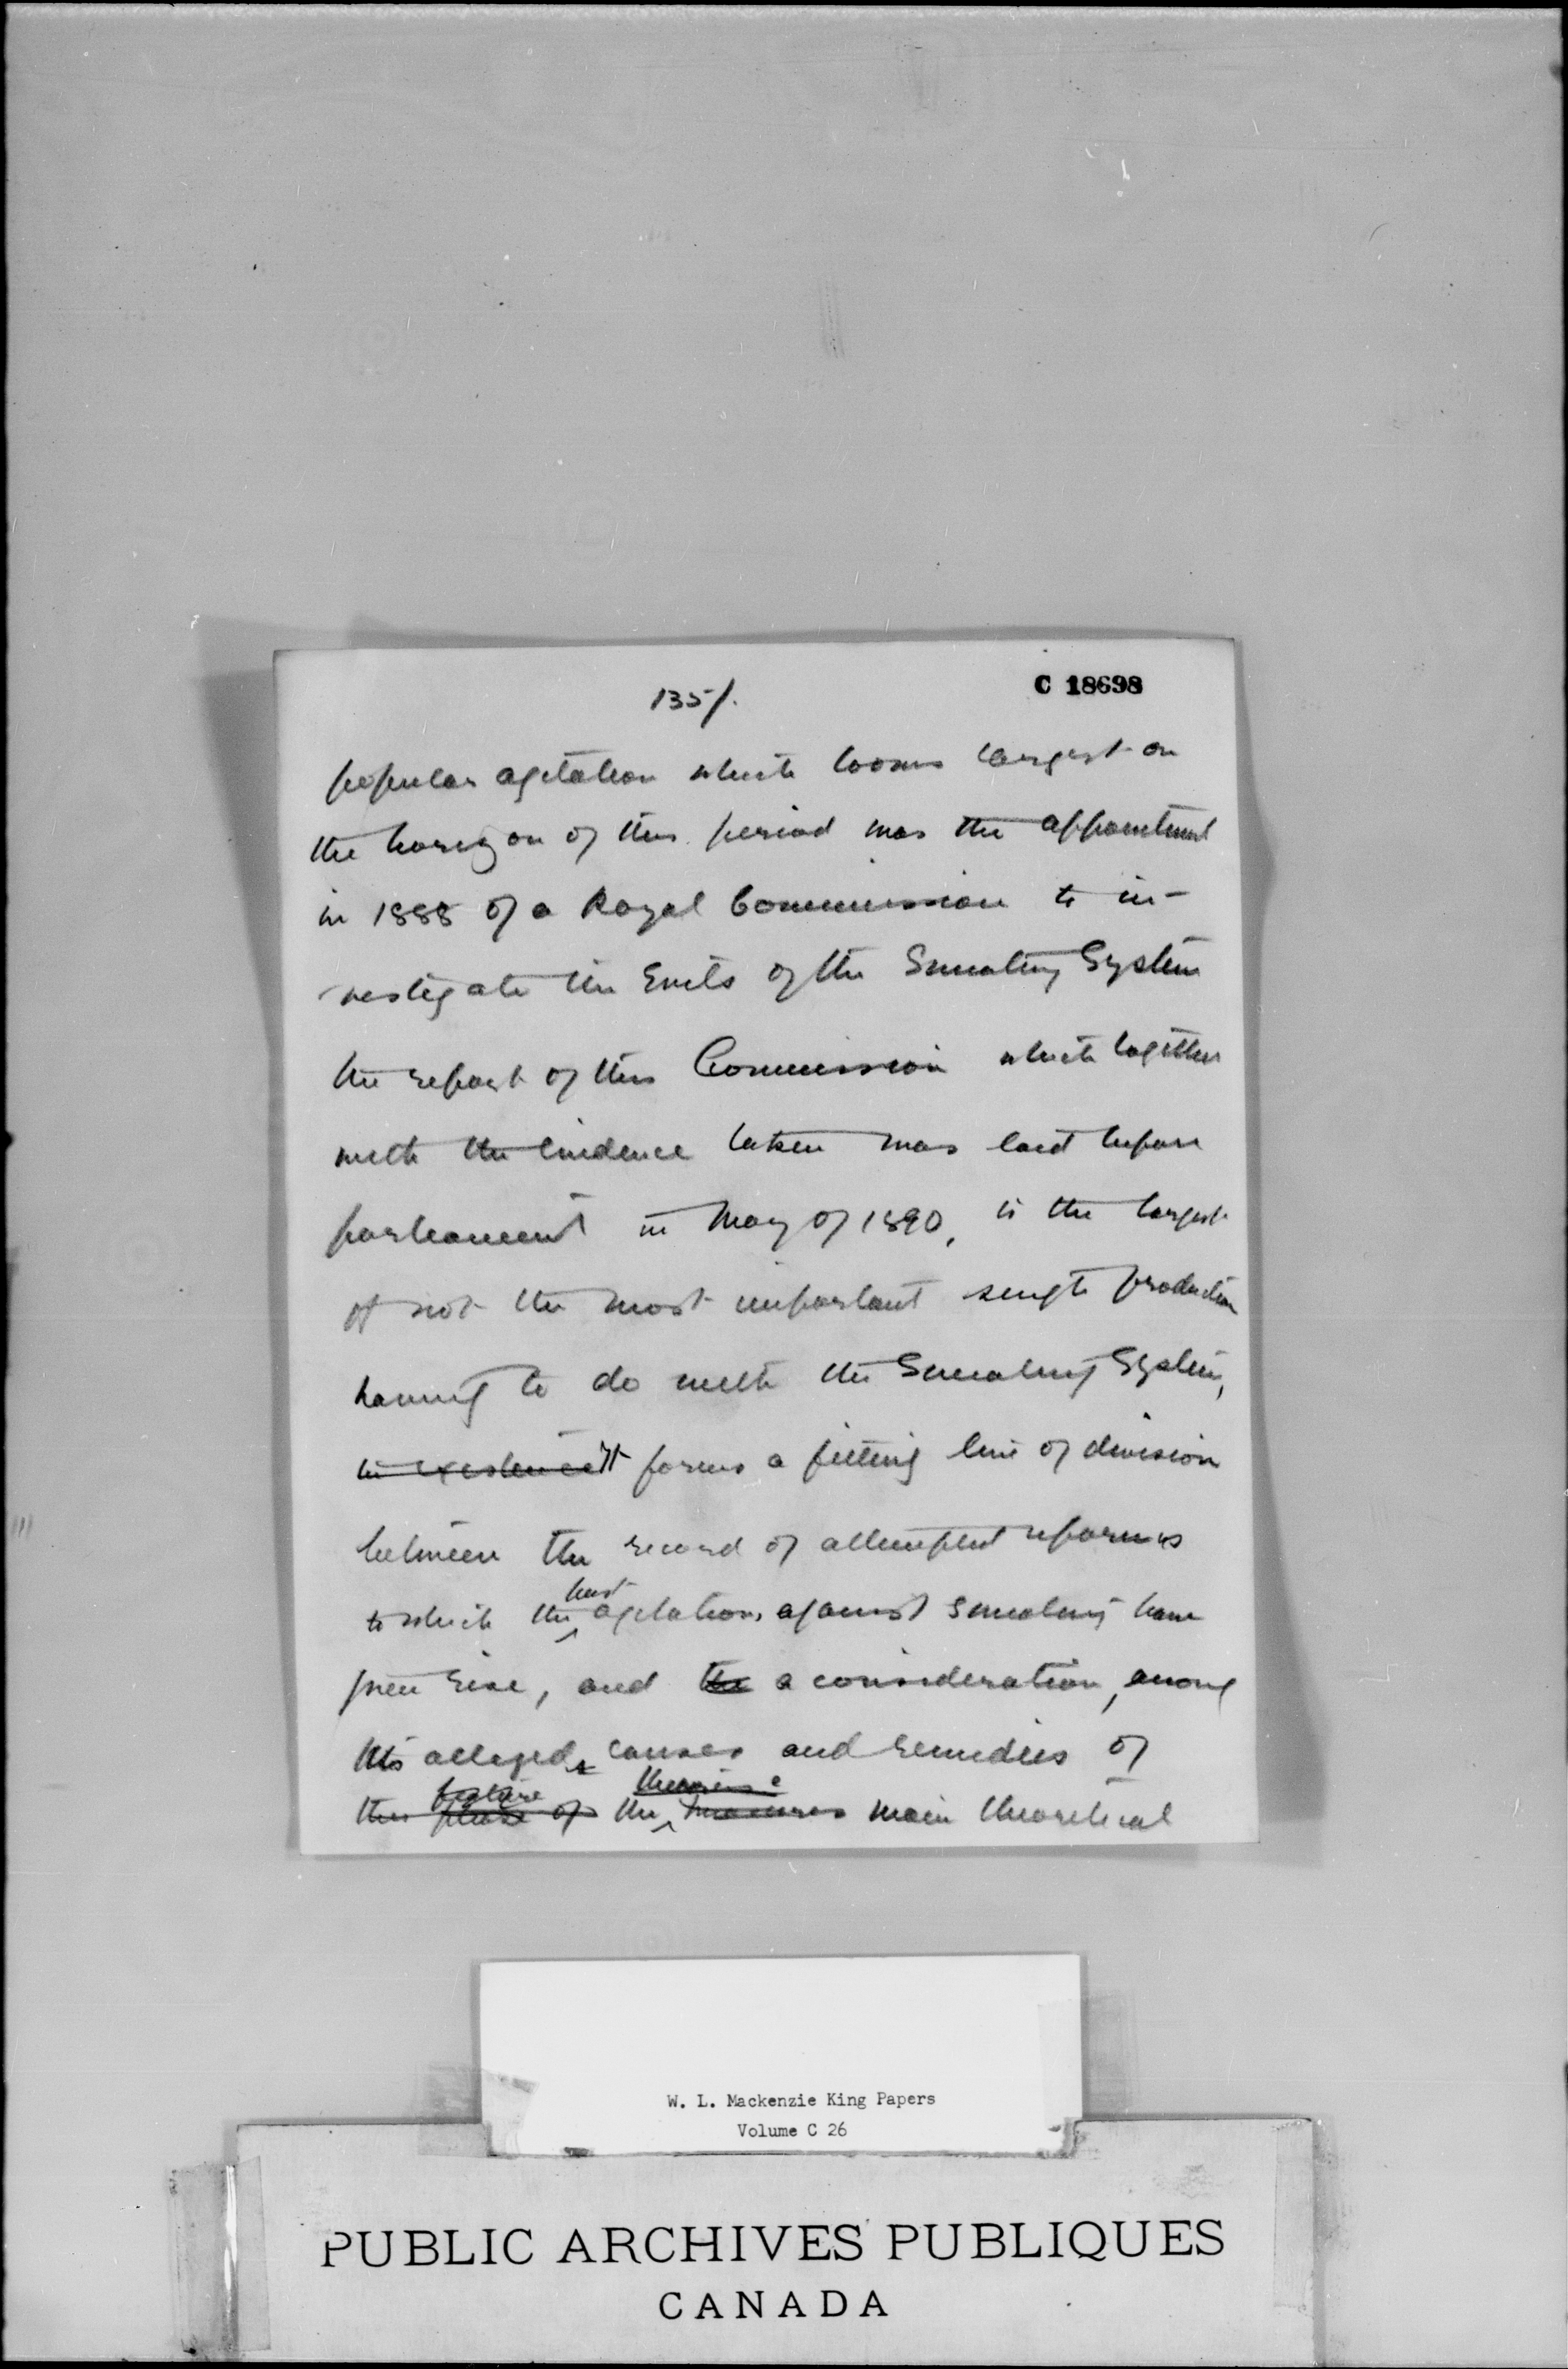 135/.
C 18698
popular agitation which looms largest on
the horizon of this period was the appointment
in 1888 of a Royal Commission to in-
vestigate the Evils of the Sweating System
the report of this Commission which together
with the Evidence taken was laid before
parliament in May of 1890, is the largest
if not the most important single production
having to do with the Sweating System,
in existence It forms a fitting line of division
between the record of attempted reforms
to which the past agitations against sweating have
given rise, and the a consideration, among
its alleged causes and remedies of
this feature phase of the theories measures main theoretical
W. L. Mackenzie King Papers
Volume C 26
PUBLIC ARCHIVES PUBLIQUES
CANADA